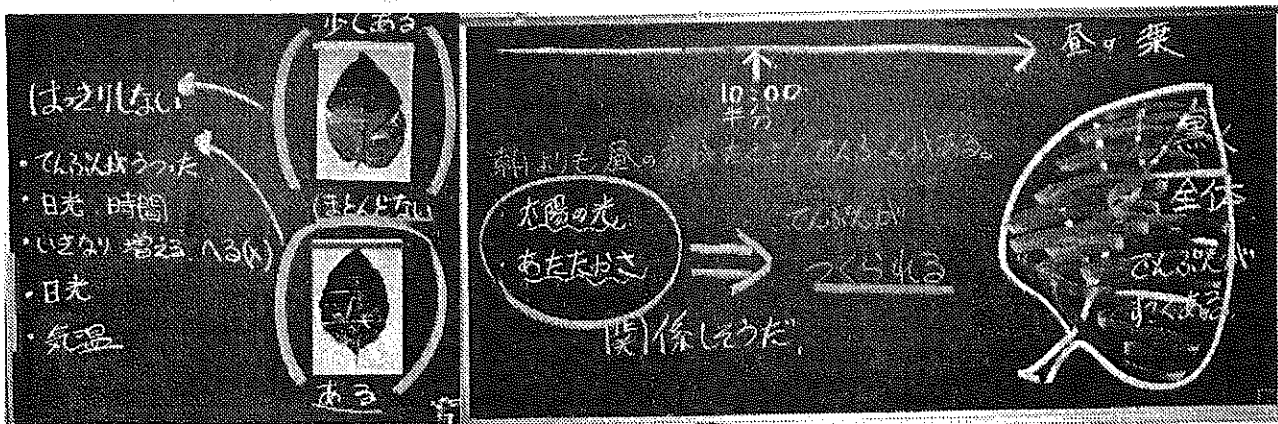 少しある
はっきりしない
・でんぷんがうつった
・日光 時間
・いきなり 増える へる(×)
・日光
・気温
ほとんどない
ある
昼の葉
10:00
半分
朝よりも昼の
・太陽の光
・あたたかさ
関係しそうだ。
でんぷんが
つくられる
黒く
全体
でんぷんが